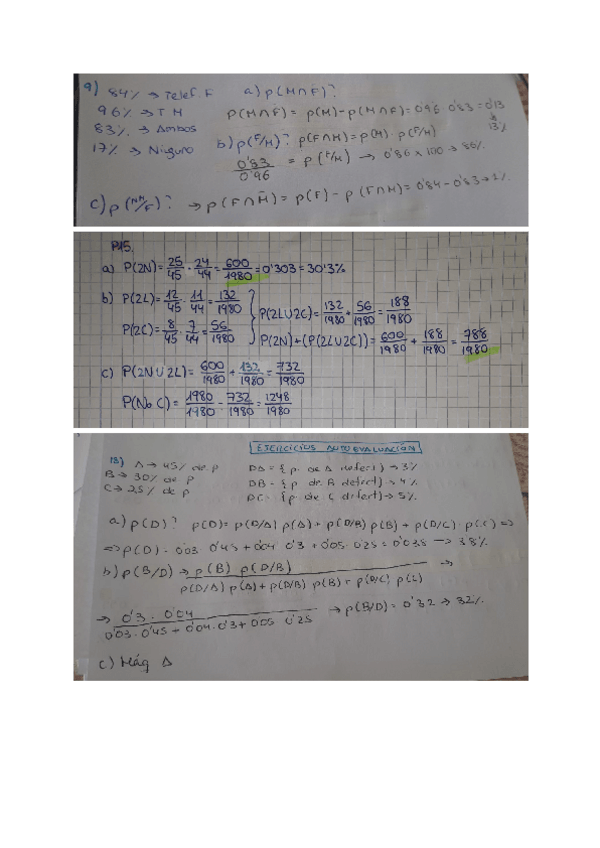 9) 84% → Telef. F a) p(M∩F̄)?
96% → T M p(M∩F̄) = p(M) - p(M∩F) = 0'96 0'83 = 0'13
13%
83% → Ambos b) p(F/M)? p(F∩M) = p(M) · p(F/M)
17% → Ninguno
0'83/0'96 = p(F/M) → 0'86 x 100 → 86%
c) p(NM/F)? → p(F∩M̄) = p(F) - p(F∩M) = 0'84 - 0'83 → 1%
P15.
a) P(2N) = 25/45 · 24/44 = 600/1980 = 0'303 = 30'3%
b) P(2L) = 12/45 · 11/44 = 132/1980
P(2L∪2C) = 132/1980 + 56/1980 = 188/1980
P(2C) = 8/45 · 7/44 = 56/1980
P(2N) + (P(2L∪2C)) = 600/1980 + 188/1980 = 788/1980
c) P(2N∪2L) = 600/1980 + 132/1980 = 732/1980
P(Nb C) = 1980/1980 - 732/1980 = 1248/1980
EJERCICIOS AUTOEVALUACIÓN
18) A → 45% de p DA = {p. de A defect} → 3%
B → 30% de p DB = {p de B defect} → 4%
C → 25% de p DC = {p de C defect} → 5%
a) p(D)? p(D) = p(D/A) p(A) + p(D/B) p(B) + p(D/C) · p(C) =>
=> p(D) = 0'03 · 0'45 + 0'04 0'3 + 0'05 · 0'25 = 0'038 → 3'8%
b) p(B/D) → p(B) p(D/B) / p(D/A) p(A) + p(D/B) p(B) + p(D/C) p(C) →
→ 0'3 · 0'04 / 0'03 · 0'45 + 0'04 · 0'3 + 0'05 0'25 → p(B/D) = 0'32 → 32%
c) Máq A